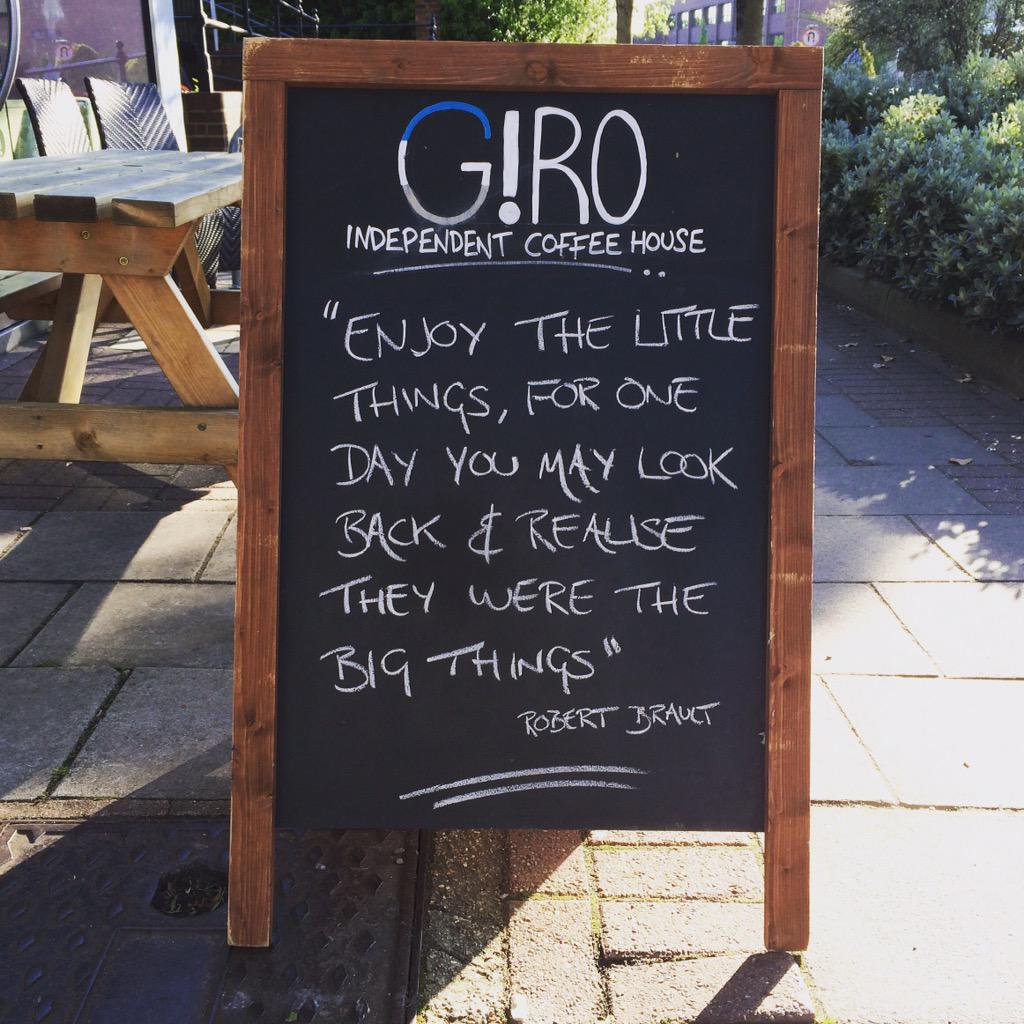 G!RO
INDEPENDENT COFFEE HOUSE
"ENJOY THE LITTLE
THINGS, FOR ONE
DAY YOU MAY LOOK
BACK & REALISE
THEY WERE THE
BIG THINGS"
ROBERT BRAULT